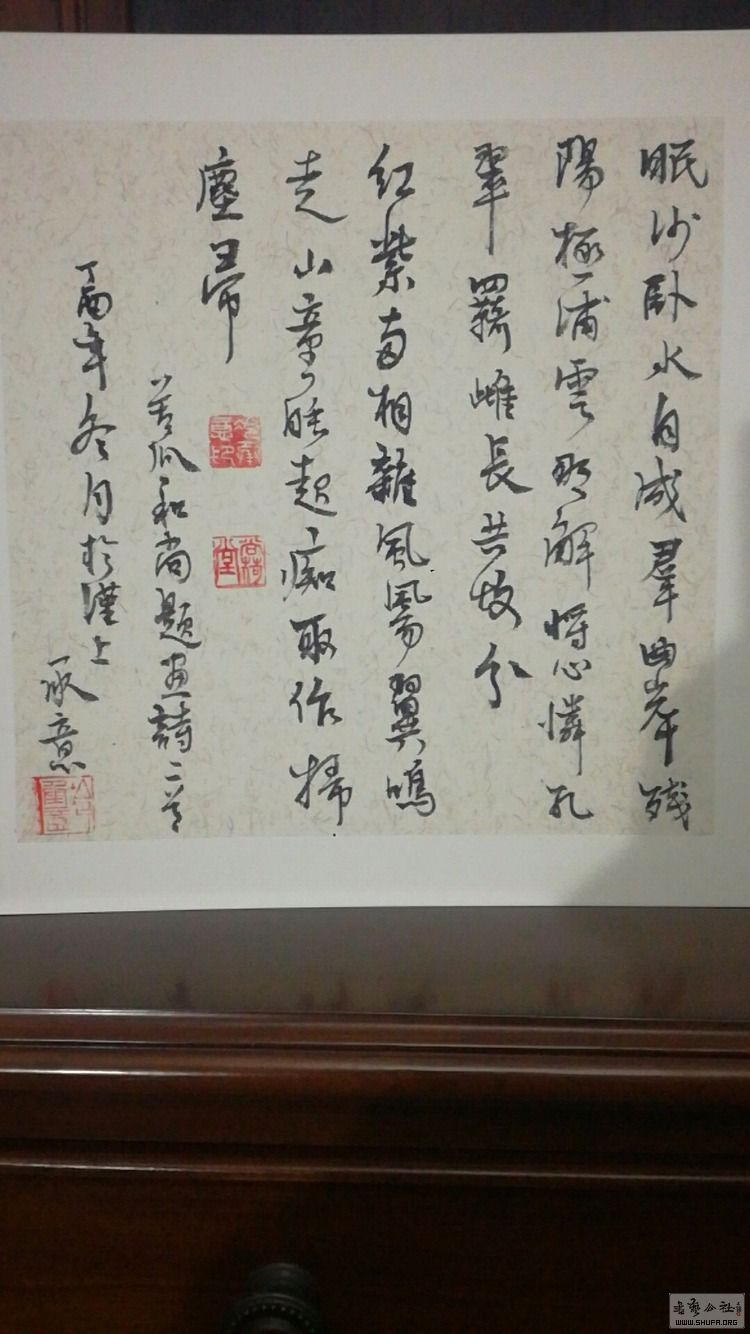 眠沙卧水自成群曲岸殘
陽極浦雲那解將心憐孔
翠羈雌長共故分
红紫相雜風翼鳴
走山童睡起痴取作掃
塵帚
苦瓜和尚題画詩二首
丁酉年冬月於漢上
承意
書藝公社
WWW.SHUFA.ORG